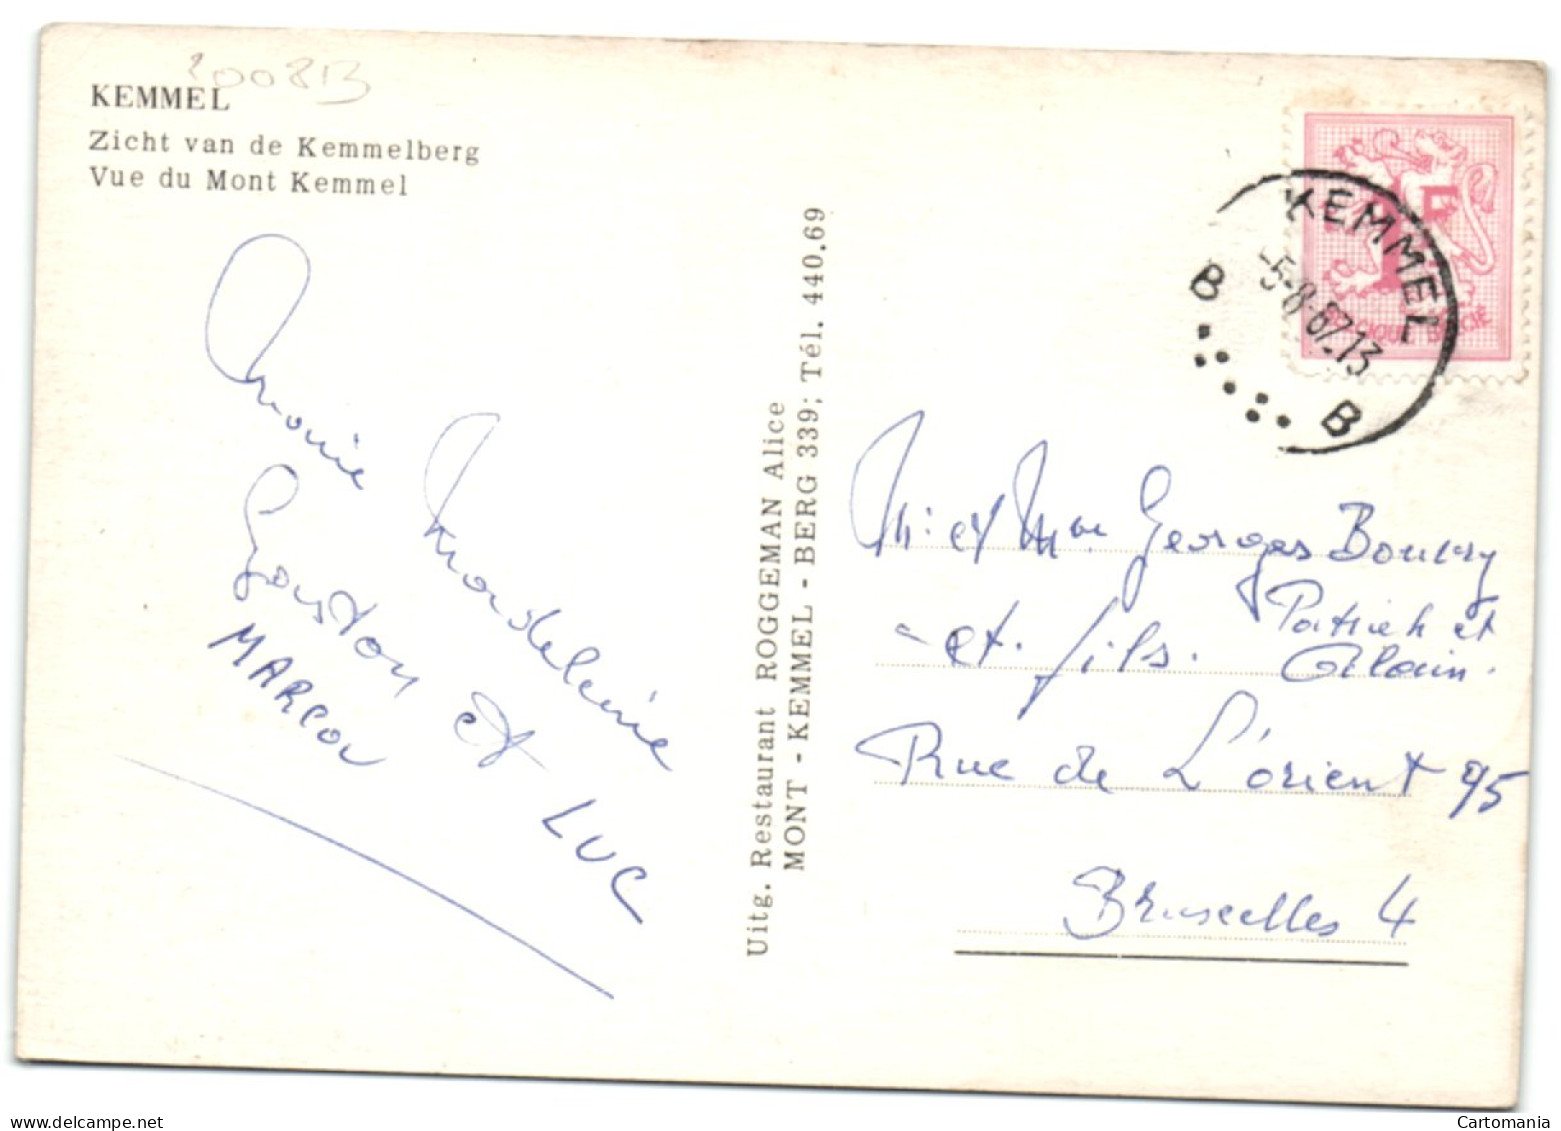 200813
KEMMEL
Zicht van de Kemmelberg
Vue du Mont Kemmel
Marie
Madeleine
Gaston et LUC
MARCOU
Uitg. Restaurant ROGGEMAN Alice
MONT - KEMMEL - BERG 339; Tél. 440.69
1F
BELGIQUE BELGIË
KEMMEL
-5-8-67.13
B B
M. et Mme Georges Bouvry
et fils. Patrick et
Alain.
Rue de L'orient 95
Bruxelles 4
delcampe.net
Cartomania